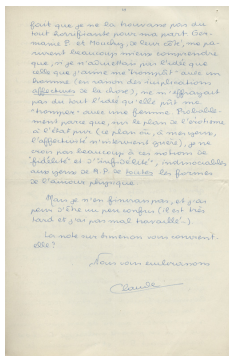 fait que je ne la trouvais pas du
tout horrifiante pour ma part. Ger-
maine P. et Mandry, de leur côté, me pa-
rurent beaucoup mieux comprendre
que, si je n'admettais pas l'idée que
celle que j'aime me "trompât" avec un
homme (en raison des implications
affectives de la chose), ne m'effrayait
pas du tout l'idée qu'elle pût me
"tromper" avec une femme. Probable-
ment parce que, sur le plan de l'érotisme
à l'état pur (ce plan où, à mes yeux,
l'affectivité n'intervient guère), je ne
crois pas beaucoup à ces notions de
"fidélité" et d'"infidélité", indissociables,
aux yeux de A.P. de toutes les formes
de l'amour physique.
Mais je n'en finirais pas, et j'ai
peur d'être un peu confus (il est très
tard et j'ai pas mal travaillé).
La note sur Simenon vous convient-
elle?
Nous vous embrassons
Claude